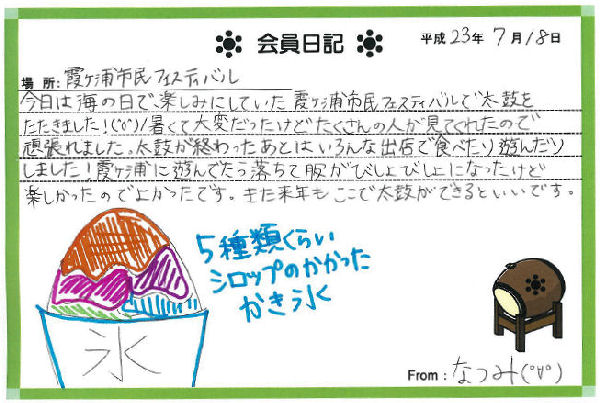 会員日記
平成23年7月18日
場所:霞ヶ浦市民フェスティバル
今日は海の日で、楽しみにしていた霞ヶ浦市民フェスティバルで太鼓を
たたきました!(°∀°)/暑くて大変だったけどたくさんの人が見てくれたので
頑張れました。太鼓が終わったあとはいろんな出店で食べたり遊んだり
しました!霞ヶ浦に遊んでたら落ちて服がびしょびしょになったけど
楽しかったのでよかったです。また来年もここで太鼓ができるといいです。
5種類くらい
シロップのかかった
かき氷
氷
From:なつみ(°∀°)